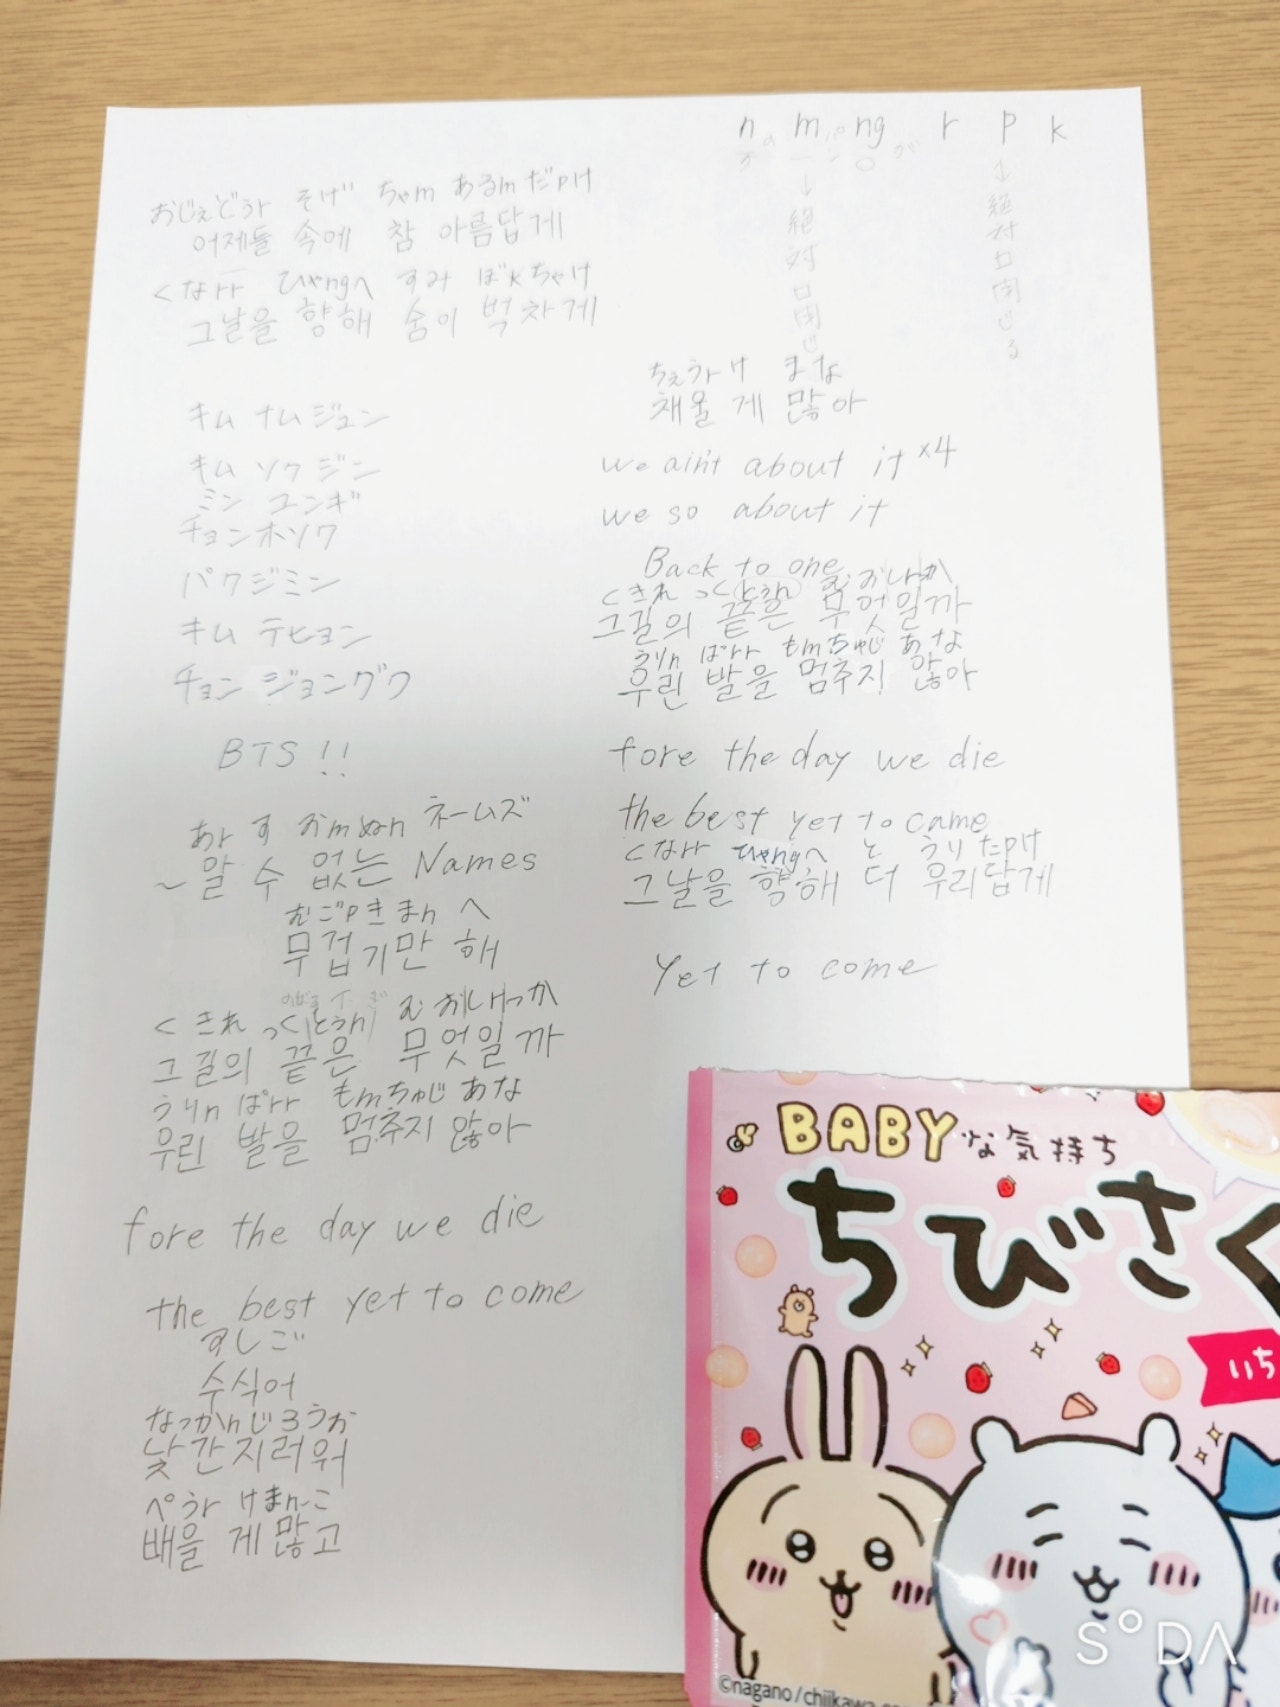 おじぇどぅr そげ ちゃm あるmだpけ
어제들 속에 참 아름답게
くなrr ひゃngへ すみ ぼkちゃけ
그날을 향해 숨이 벅차게
キム ナムジュン
キム ソクジン
ミン ユンギ
チョンホソク
パクジミン
キム テヒョン
チョン ジョングク
BTS!!
あr す おmぬn ネームズ
~알 수 없는 Names
むごpきまn へ
무겁기만 해
くきれ っくとぅn む おしiっか
그길의 끝은 무엇일까
うりn ばrr もmちゅじ あな
우린 발을 멈추지 않아
fore the day we die
the best yet to come
すしご
수식어
なっかnじろうお
낯간지러워
ぺうr けまnこ
배울 게 많고
n m ng r p k
↓ ↓
絶対口閉じ
絶対口閉じる
ちぇうr け まな
채울 게 많아
we ain't about it ×4
we so about it
Back to one
くきれ っくとぅn む おしiか
그길의 끝은 무엇일까
うりn ばrr もmちゅじ あな
우린 발을 멈추지 않아
fore the day we die
the best yet to came
くなrr ひゃngへ と うりたpけ
그날을 향해 더 우리답게
Yet to come
BABYな気持ち
ちびさく
いち
©nagano/chiikawa
SODA